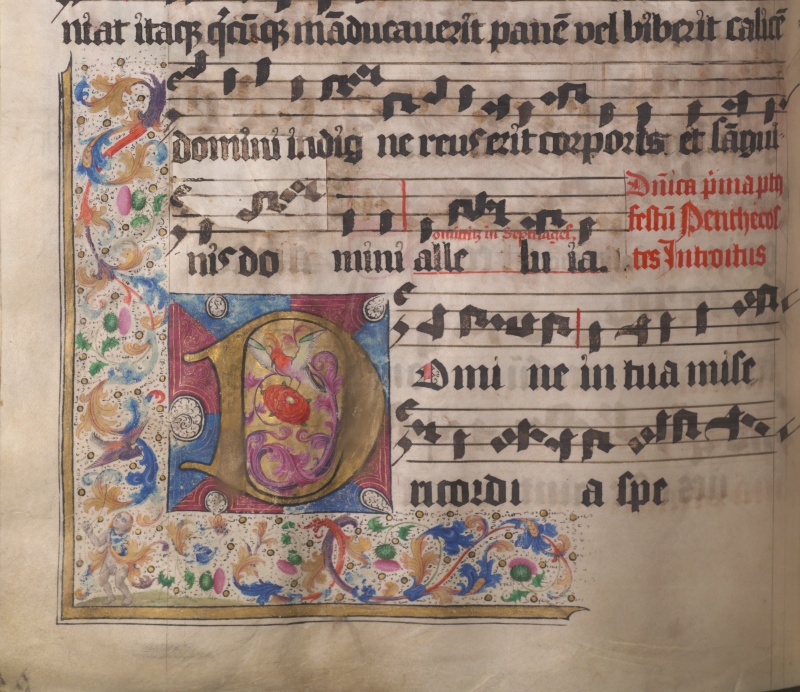 niat itaqȝ q̄cūqȝ māducauerit panē vel biberit calicē
domini indig ne reus erit corporis et sāgui
nis do mini alle lu ia.
Dn̄ica p̄ima
festū Penthecos
tes Introitus
Domi ne in tua mise
ricordi a spe